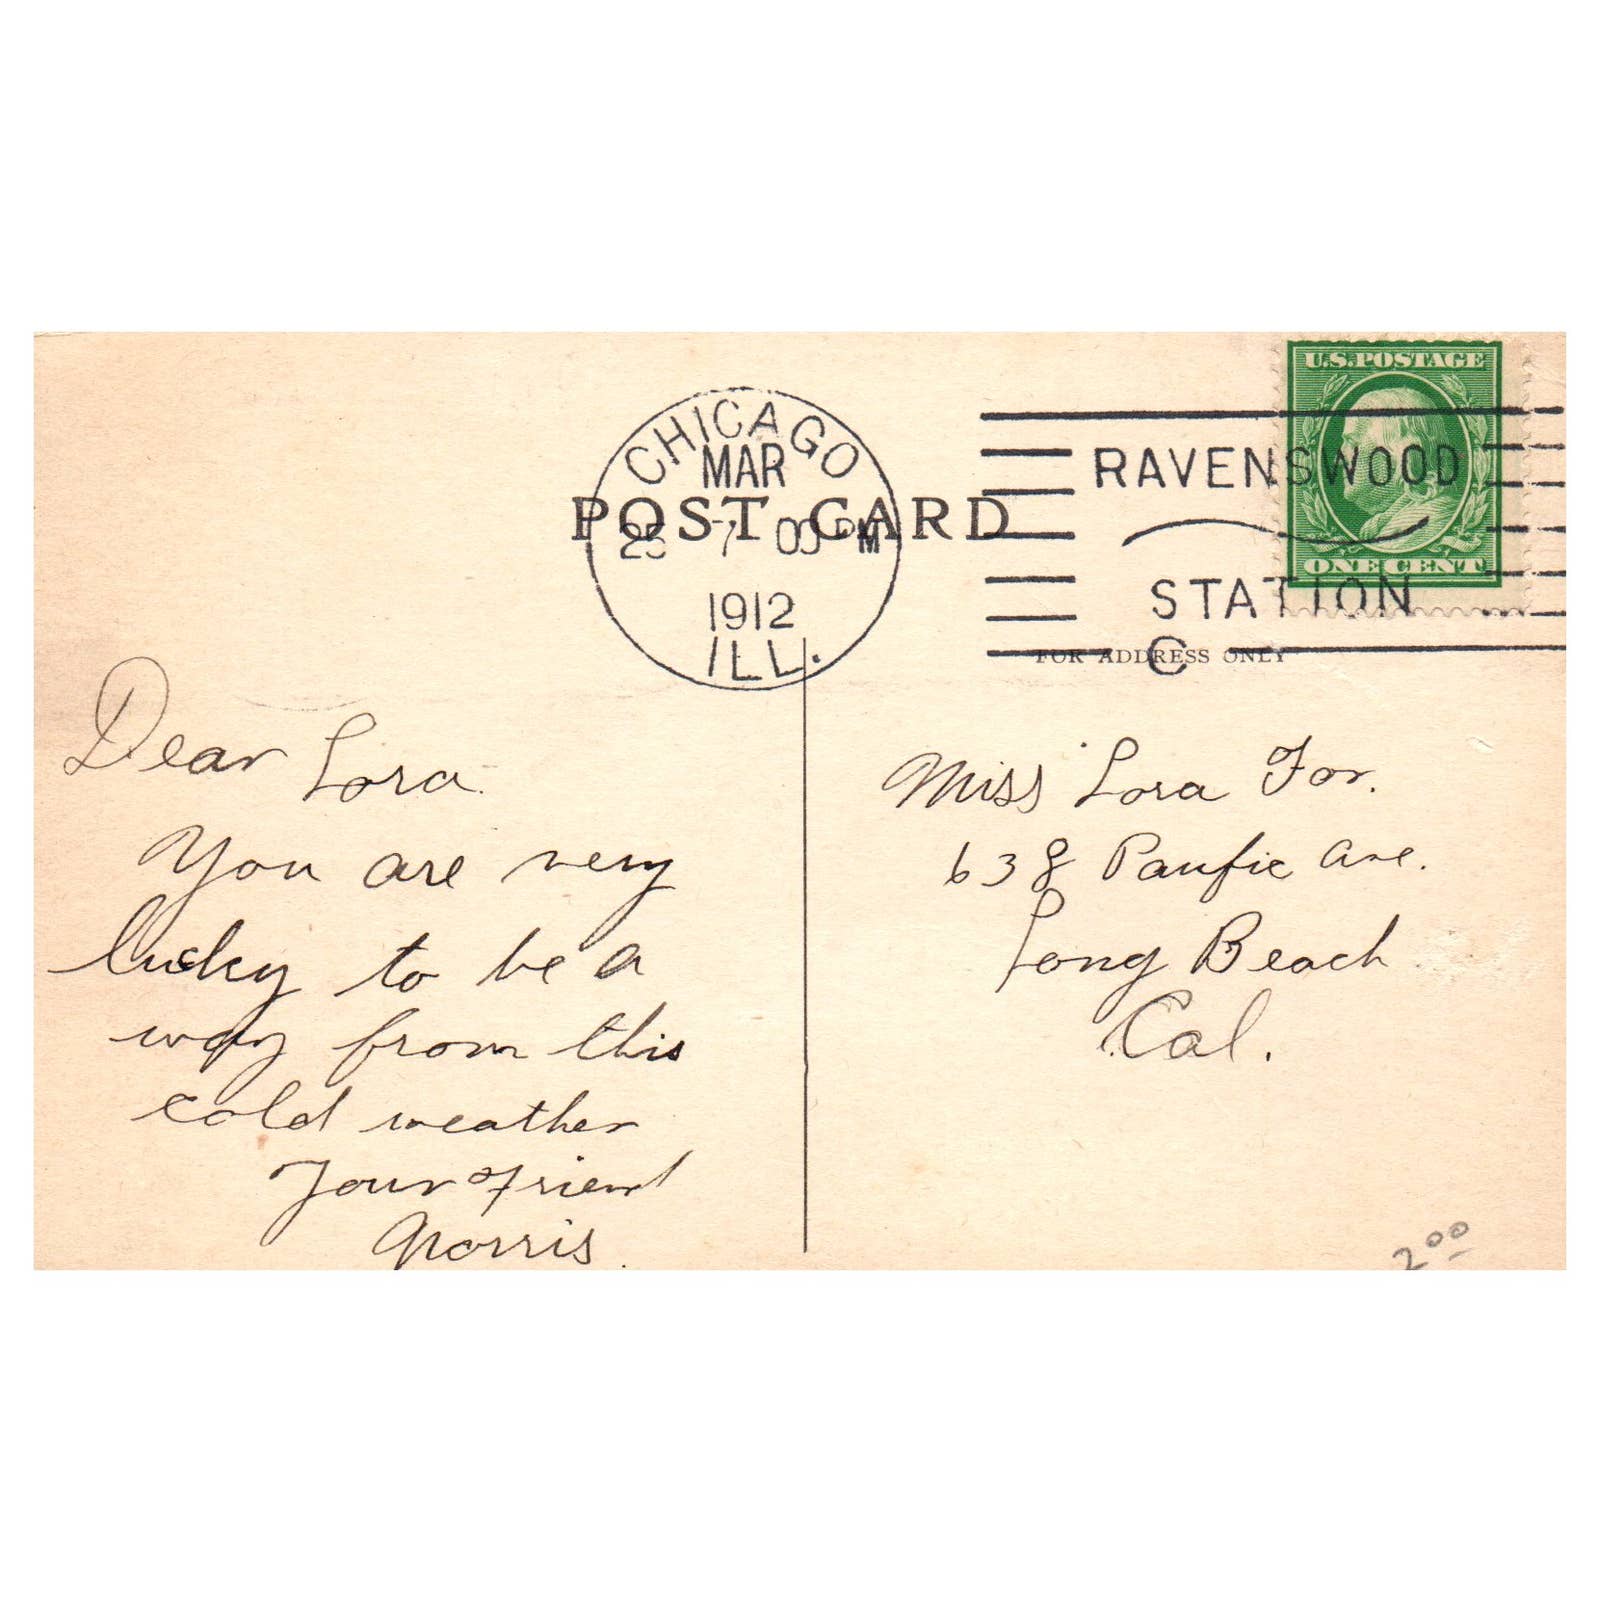 U.S. POSTAGE
CHICAGO
MAR
RAVENSWOOD
POST CARD
25 7 00 PM
ONE CENT
1912
STATION
ILL.
C
FOR ADDRESS ONLY
Dear Lora.
You are very
lucky to be a
way from this
cold weather
Your Friend
Norris.
Miss Lora For.
638 Pacific Ave.
Long Beach
Cal.
2 00